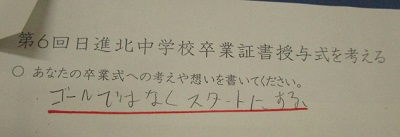 第6回日進北中学校卒業証書授与式を考える
○ あなたの卒業式への考えや想いを書いてください。
ゴールではなくスタートにする。